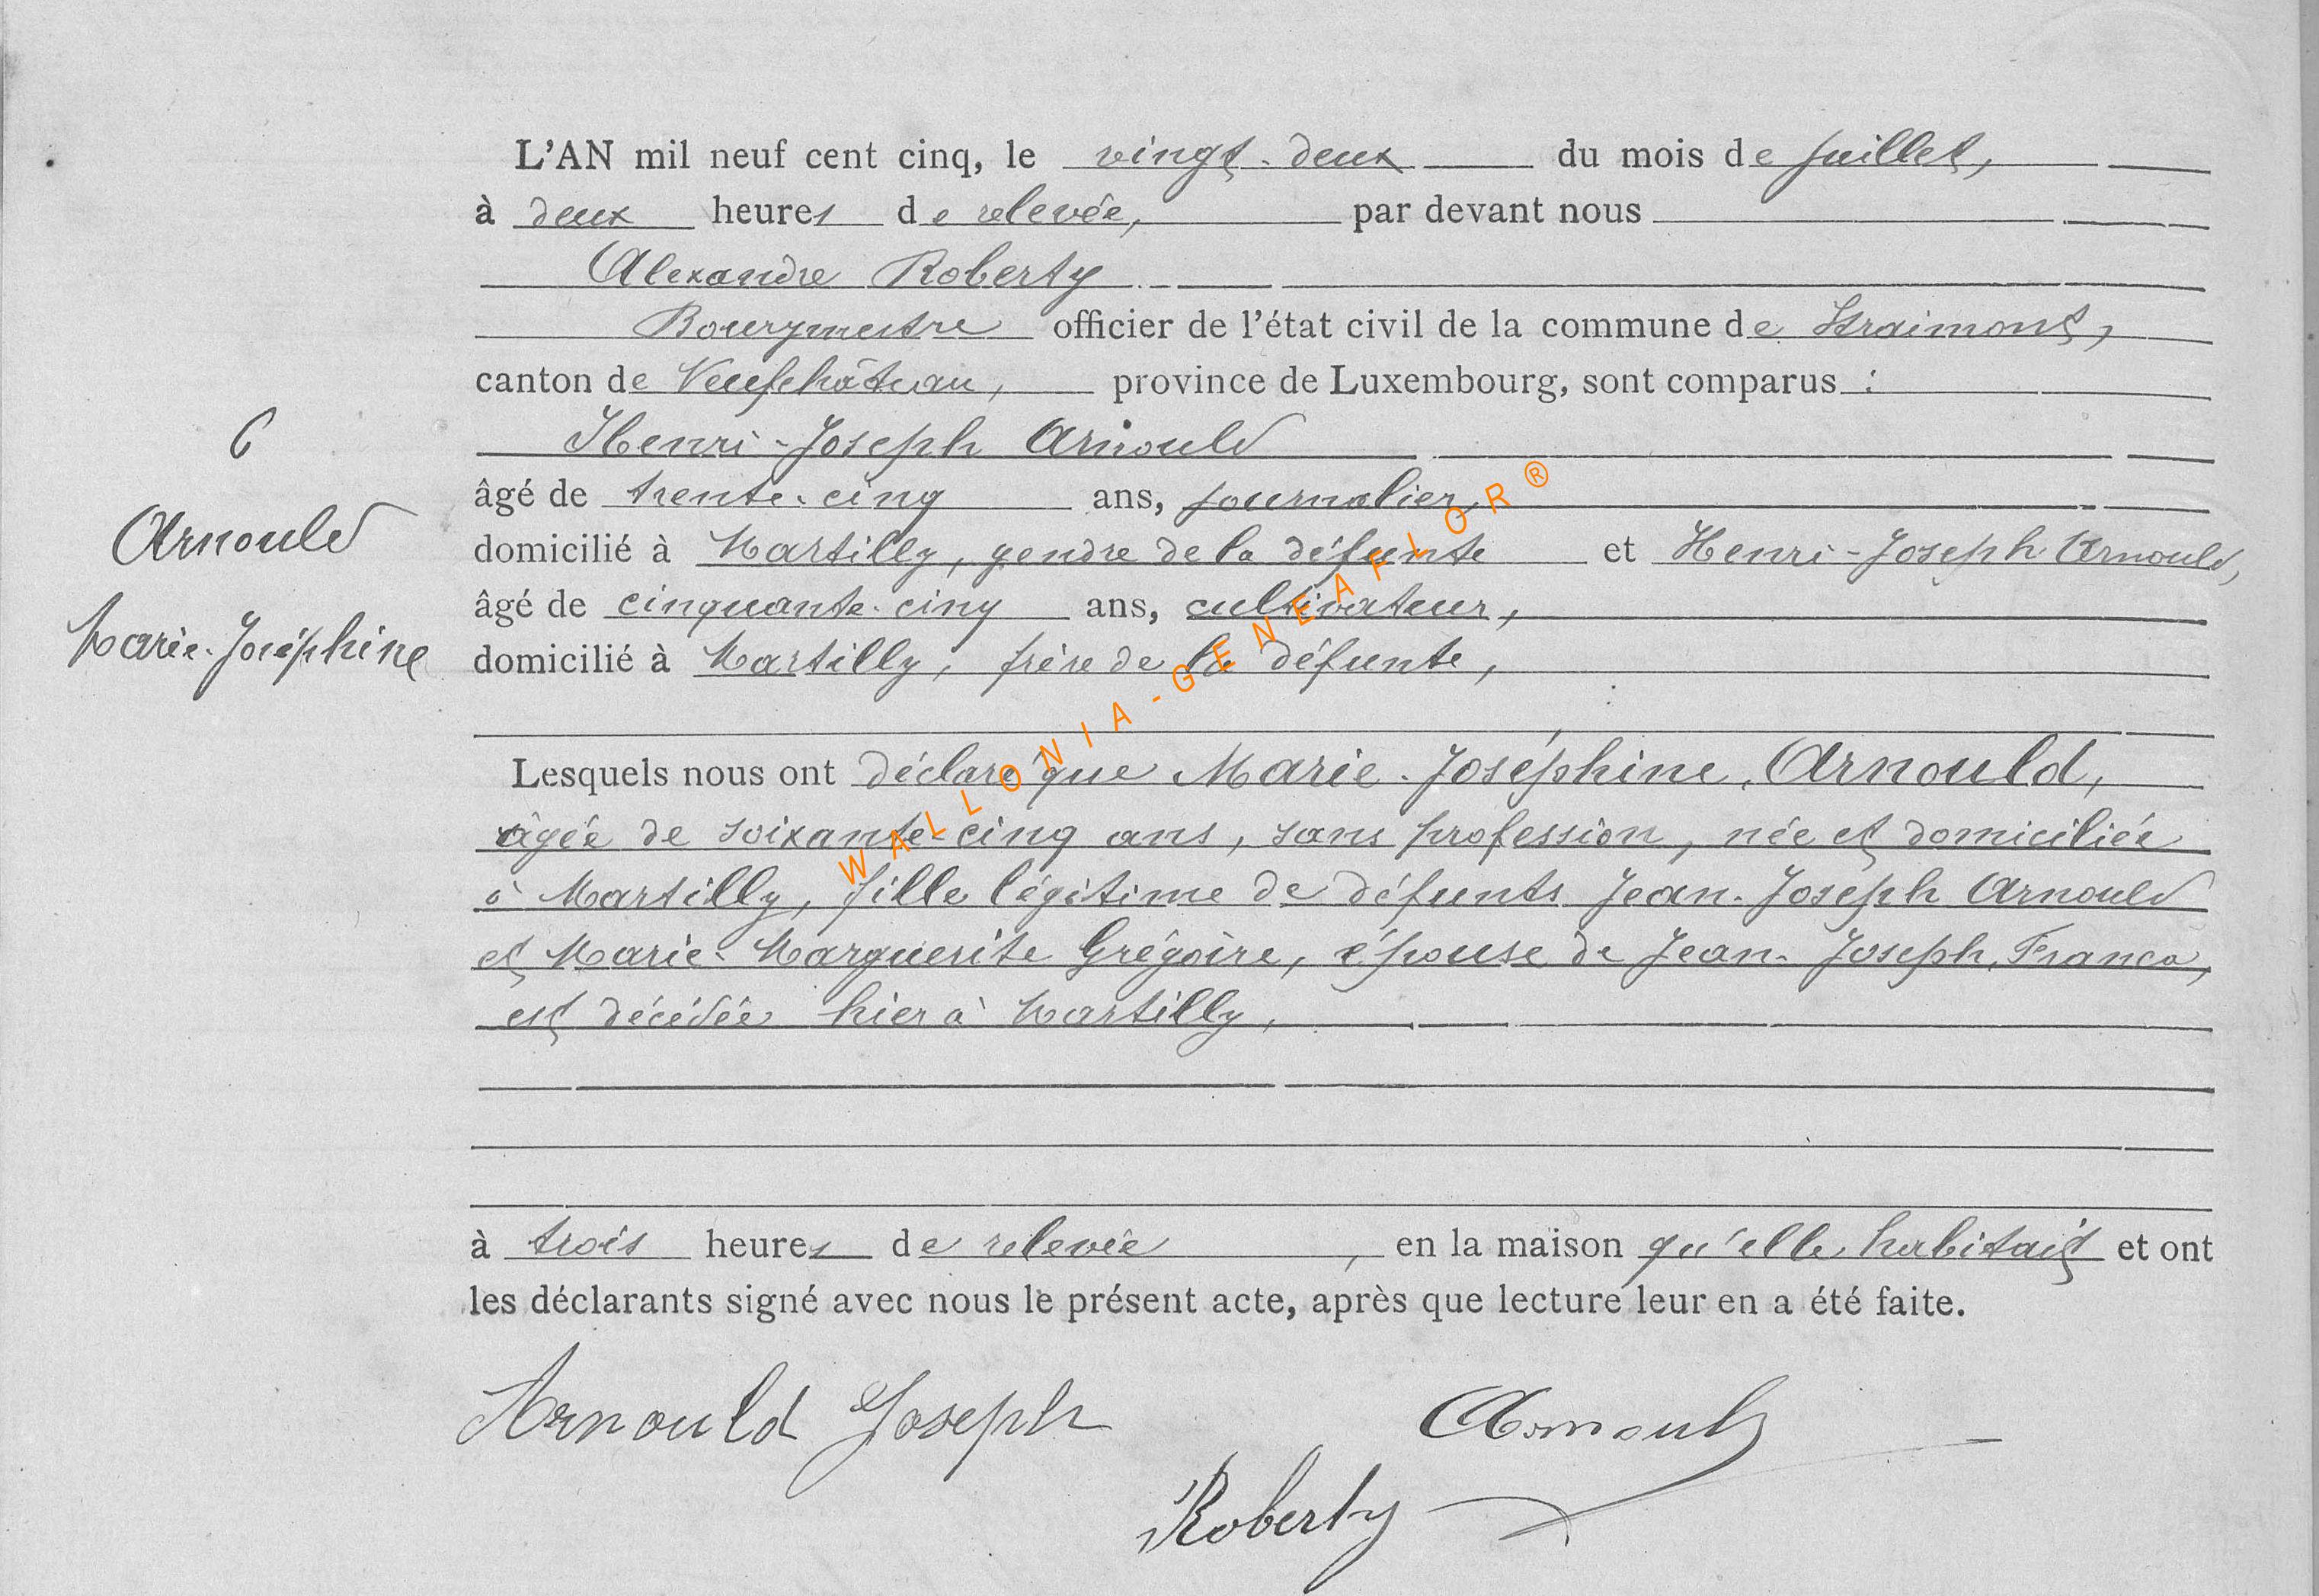 L'AN mil neuf cent cinq, le vingt-deux du mois de juillet,
à deux heures de relevée, par devant nous
Alexandre Roberty
Bourgmestre officier de l'état civil de la commune de Straimont,
canton de Neufchâteau, province de Luxembourg, sont comparus :
Henri-Joseph Arnould
âgé de trente-cinq ans, journalier,
domicilié à Martilly, gendre de la défunte et Henri-Joseph Arnould,
âgé de cinquante-cinq ans, cultivateur,
domicilié à Martilly, frère de la défunte,
6
Arnould
Marie-Joséphine
Lesquels nous ont déclaré que Marie-Joséphine Arnould,
âgée de soixante-cinq ans, sans profession, née et domiciliée
à Martilly, fille légitime de défunts Jean-Joseph Arnould
et Marie-Marguerite Grégoire, épouse de Jean-Joseph Franca,
est décédée hier à Martilly,
à trois heures de relevée, en la maison qu'elle habitait et ont
les déclarants signé avec nous le présent acte, après que lecture leur en a été faite.
Arnould Joseph
Arnould
Roberty
WALLONIA-GENEAFLOR®